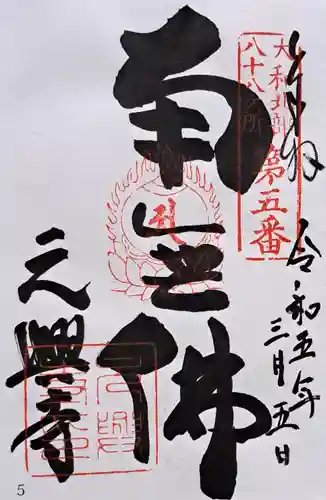 奉拝
令和五年
三月五日
大和北部
八十八ヶ所
第五番
南無佛
元興寺
5